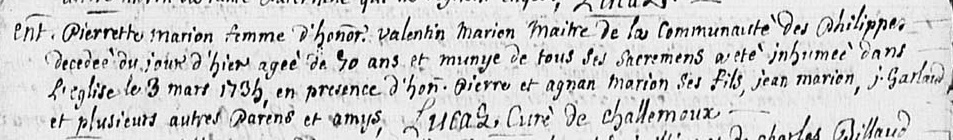 ent. Pierrette marion femme d'honor. valentin Marion Maitre de la Communauté des Philippes
decedeé du jour d'hier ageé de 70 ans et munye de tous ses Sacremens a eté inhumeé dans
l'eglise le 3 mars 173, en presence d'hon. Pierre et agnan Marion ses fils, jean marion, j. Garlaud
et plusieurs autres Parens et amys, Lucaz Curé de challemoux
charles Billaud